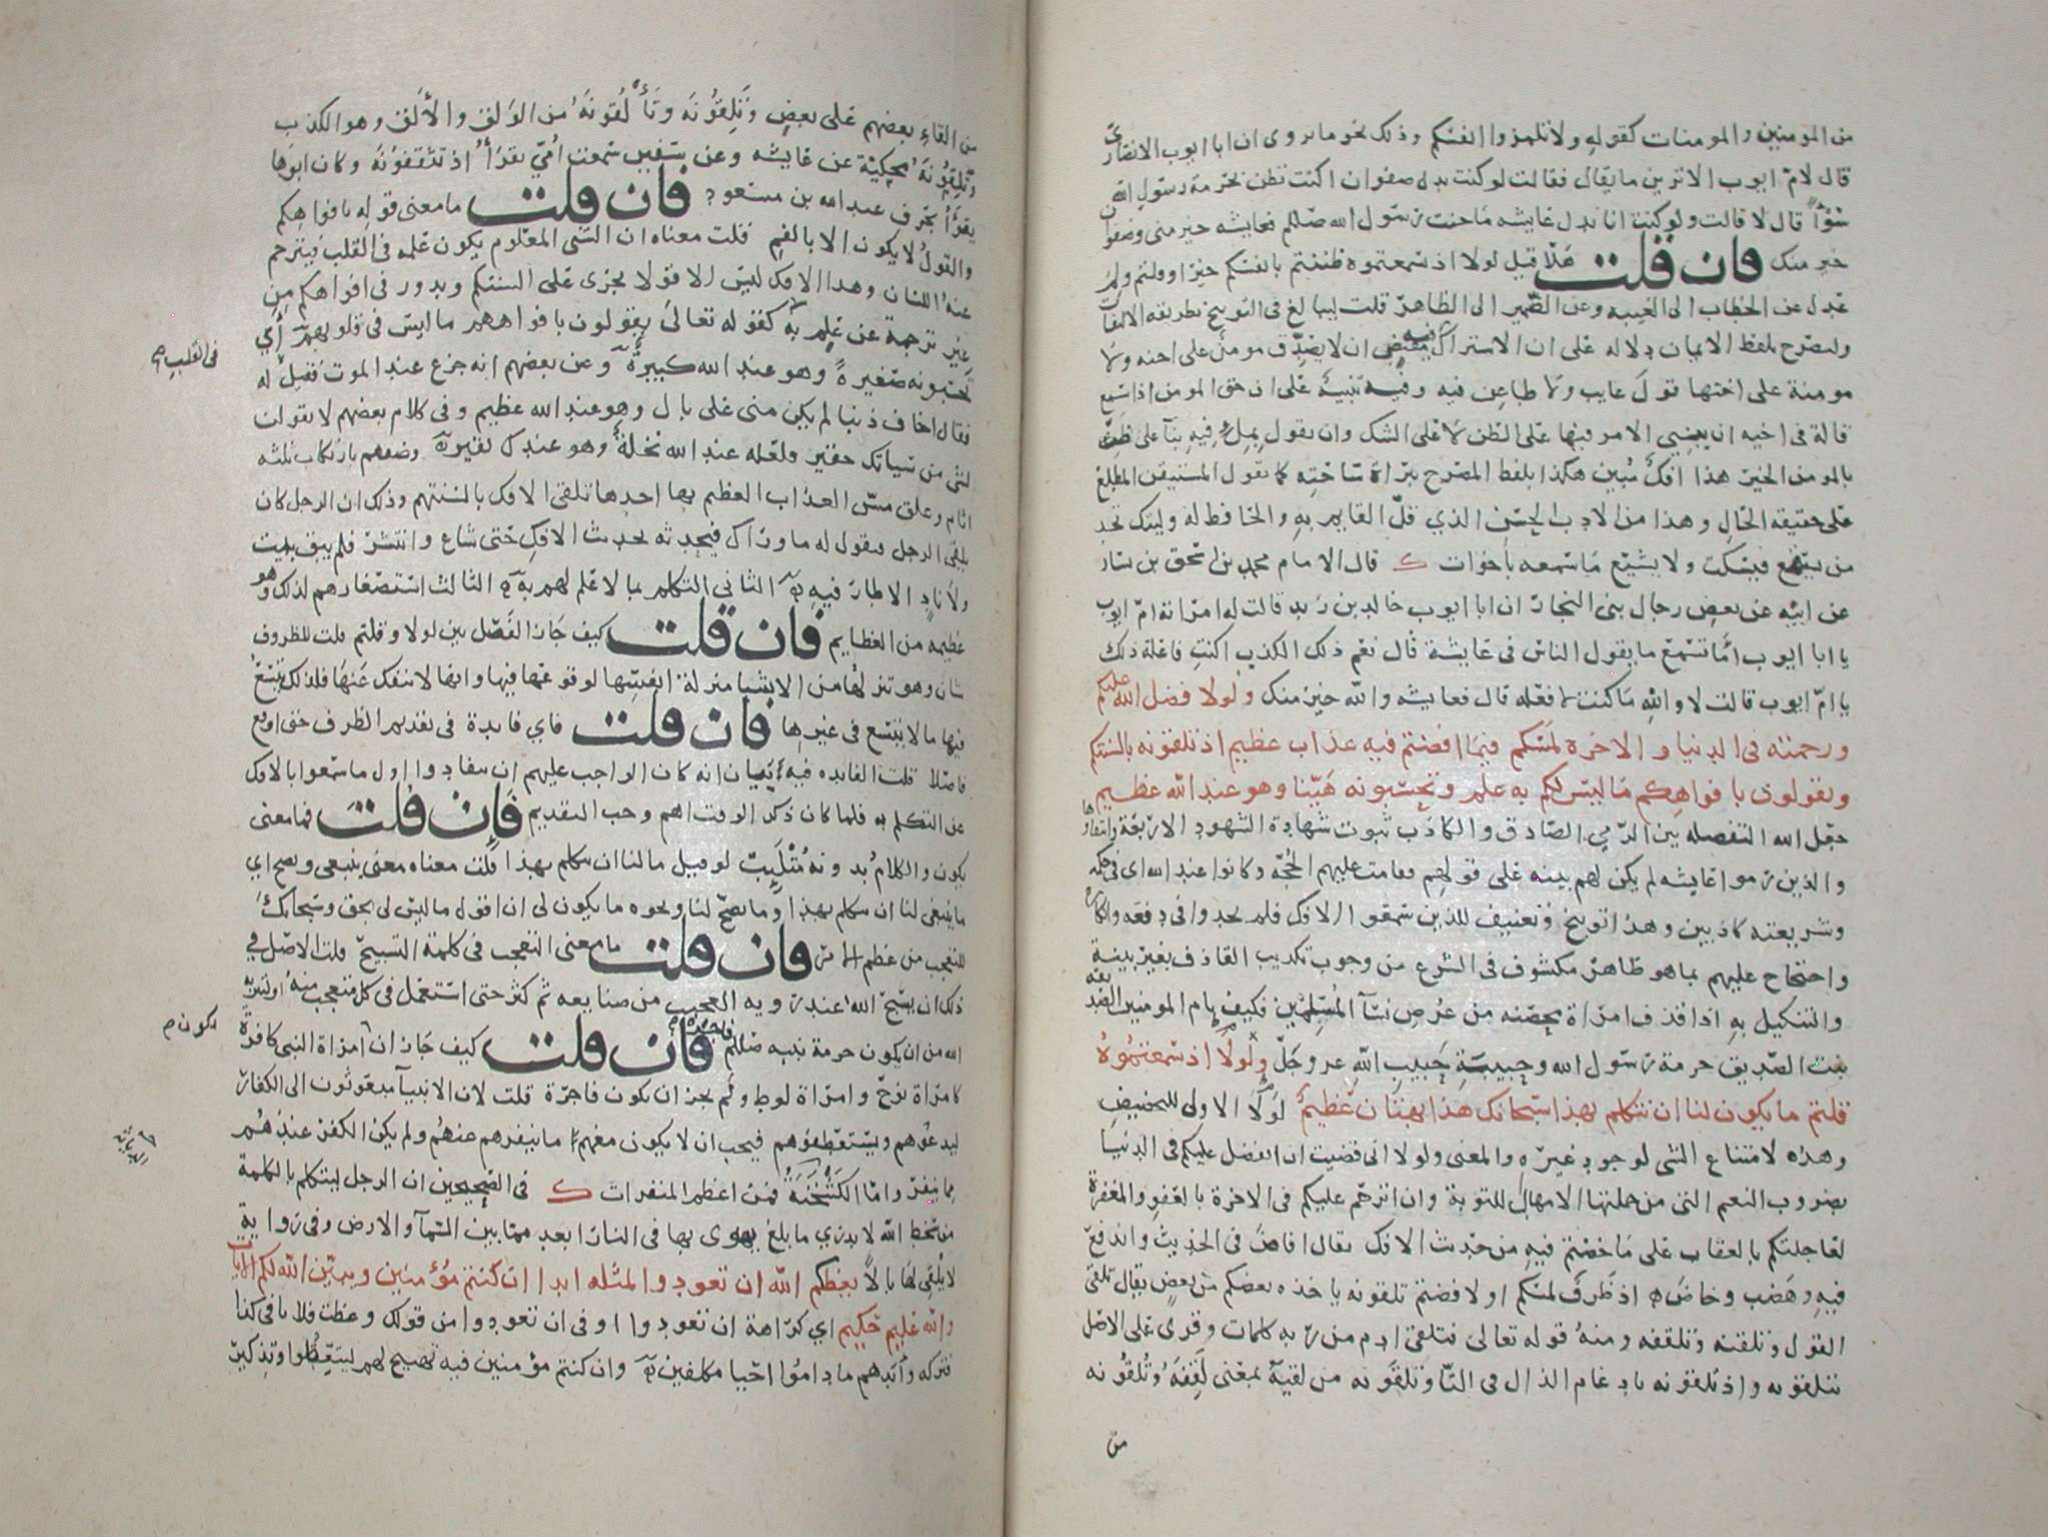 من المومنين والمومنات كقوله ولا تلمزوا انفسكم وذلك نحو ما يروى ان ابا ايوب الانصاري
قال لام ايوب الا ترين ما يقال فقالت لو كنت بدل صفوان اكنت تظن بحرمة رسول الله
سُوْأً قال لا قالت ولو كنت انا بدل عايشه ما خنت رسول الله صللم فعايشه خير مني وصفوان
خير منك فان قلت هلا قيل لولا اذ سمعتموه ظننتم بانفسكم خيرا وقلتم ولم
عدل عن الخطاب الى الغيبه وعن الضمير الى الظاهر قلت ليبالغ في التوبيخ بطريقة الالتفات
وليصرح بلفظ الايمان دلاله على ان الاشتراك فيه مقتض ان لا يصدق مومن على اخيه ولا
مومنة على اختها قول عايب ولا طاعن فيه وفيه تنبيه على ان حق المومن اذا سمع
قالة في اخيه ان يبني الامر فيها على الظن لا على الشك وان يقول بمل فيه بنآ على ظنه
بالمومن الخير هذا افك مبين هكذا بلفظ المصرح ببراة ساحته كما يقول المستيقن المطلع
على حقيقه الحال وهذا من الادب الحسن الذي قل القايم به والحافظ له وليتك تجد
من يسمع فيسكت ولا يشيع ما سمعه باخوات ك قال الامام محمد بن اسحق بن يسار
عن ابيه عن بعض رجال بني النجار ان ابا ايوب خالد بن زيد قالت له امراته ام ايوب
يا ابا ايوب اما تسمع ما يقول الناس في عايشة قال نعم ذلك الكذب اكنت فاعلة ذلك
يا ام ايوب قالت لا والله ما كنت لافعله قال فعايشه والله خير منك ولولا فضل الله عليكم
ورحمته في الدنيا والاخرة لمسكم فيما افضتم فيه عذاب عظيم اذ تلقونه بالسنتكم
وتقولون بافواهكم ما ليس لكم به علم وتحسبونه هينا وهو عند الله عظيم
جعل الله التفصله بين الرمي الصادق والكاذب ثبوت شهادة الشهود الاربعة وانتفاؤها
والذين رموا عايشه لم يكن لهم بينه على قولهم فقامت عليهم الحجه وكانوا عند الله اي في حكمه
وشريعته كاذبين وهذا توبيخ وتعنيف للذين سمعوا الافك فلم يجدوا في دفعه وانكاره
واحتجاج عليهم بما هو ظاهر مكشوف في الشرع من وجوب تكذيب القاذف بغير بينة
والتنكيل به اذا قذف امراة محصنه من عرض نسآ المسلمين فكيف بام المومنين الصديقه
بنت الصديق حرمة رسول الله وحبيبة حبيب الله عز وجل ولولا اذ سمعتموه
قلتم ما يكون لنا ان نتكلم بهذا سبحانك هذا بهتان عظيم لولا الاولى للتحضيض
وهذه لامتناع الشى لوجود غيره والمعنى ولولا اني قضيت ان اتفضل عليكم في الدنيا
بضروب النعم التي من جملتها الامهال للتوبة وان اترحم عليكم في الاخرة بالعفو والمغفرة
لعاجلتكم بالعقاب على ما خضتم فيه من حديث الافك يقال افاض في الحديث واندفع
فيه وهضب وخاض اذ ظرف لمسكم او لافضتم تلقونه ياخذه بعضكم من بعض يقال تلقى
القول وتلقنه وتلقفه ومنه قوله تعالى فتلقى ادم من ربه كلمات وقرى على الاصل
تتلقونه واذ تلقونه بادغام الذال في التا وتلقونه من لقيه بمعنى لقفه وتُلقُونه
من
من القاء بعضهم على بعض وتَلِقونه وتأْلقونه من الولق والألق وهو الكذب
وتلقونه محكية عن عايشه وعن سفين سمعت امي تقرأ اذ تثقفونه وكان ابوها
يقرأ بحرف عبد الله بن مسعود فان قلت ما معنى قوله بافواهكم
والقول لا يكون الا بالفم قلت معناه ان الشى المعلوم يكون علمه في القلب فيترجم
عنه اللسان وهذا الافك ليس الا قولا يجري على السنتكم ويدور في افواهكم من
غير ترجمة عن علم به كقوله تعالى يقولون بافواههم ما ليس في قلوبهم أي
في القلب
تحسبونه صغيرة وهو عند الله كبيرة وعن بعضهم انه جزع عند الموت فقيل له
فقال اخاف ذنبا لم يكن مني على بال وهو عند الله عظيم وفي كلام بعضهم لا تقولن
لشى من سياتك حقير فلعله عند الله نخلة وهو عندك نقير وصفهم بارتكاب ثلثه
اثام وعلق مس العذاب العظيم بها احدها تلقى الافك بالسنتهم وذلك ان الرجل كان
يلقى الرجل فيقول له ما وراك فيحدثه بحديث الافك حتى شاع وانتشر فلم يبق بيت
ولا ناد الا طار فيه الثاني التكلم بما لا علم لهم به الثالث استصغارهم لذلك وهو
عظيمه من العظايم فان قلت كيف جاز الفصل بين لولا وقلتم قلت للظروف
شان وهو تنزلها من الاشيا منزلة انفسها لوقوعها فيها وانها لا تنفك عنها فلذلك يتسع
فيها ما لا يتسع في غيرها فان قلت فاي فايدة في تقديم الظرف حتى اوقع
فاصلا قلت الفايده فيه بيان انه كان الواجب عليهم ان يتفادوا اول ما سمعوا بالافك
عن التكلم به فلما كان ذكر الوقت اهم وجب التقديم فان قلت فما معنى
يكون والكلام بدونه مُتْلَئِبّ لو قيل ما لنا ان نتكلم بهذا قلت معناه معنى ينبغي ويصح اي
ما ينبغي لنا ان نتكلم بهذا وما يصح لنا ونحوه ما يكون لي ان اقول ما ليس لي بحق وسبحانك
للتعجب من عظم الامر فان قلت ما معنى التعجب في كلمة التسبيح قلت الاصل في
ذلك ان يسبح الله عند رويه العجيب من صنايعه ثم كثر حتى استعمل في كل متعجب منه او لتنزيه
الله من ان يكون حرمة نبيه صللم فاجرة فان قلت كيف جاز ان امراة النبي كافرة
تكون م
كامراة نوح وامراة لوط ولم يجز ان يكون فاجرة قلت لان الانبيآ مبعوثون الى الكفار
ليدعوهم ويستعطفوهم فيجب ان لا يكون معهم ما ينفرهم عنهم ولم يكن الكفر عندهم
مما ينفر واما الكشخنة فمن اعظم المنفرات ك في الصحيحين ان الرجل ليتكلم بالكلمة
من سخط الله لا يدري ما تبلغ يهوي بها في النار ابعد مما بين السمآ والارض وفي رواية
لا يلقي لها بالاً يعظكم الله ان تعودوا لمثله ابدا ان كنتم مؤمنين ويبين الله لكم الايات
والله عليم حكيم اي كراهة ان تعودوا او في ان تعودوا من قولك وعظت فلانا في كذا
فتركه وأبدهم ما داموا احيا مكلفين وان كنتم مؤمنين فيه تهييج لهم ليتعظوا وتذكير